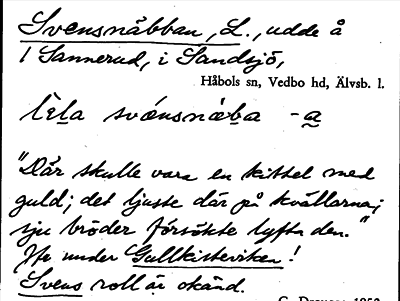 Svensnåbban, L., udde å
1 Sannerud, i Sandsjö,
Håbols sn, Vedbo hd, Älvsb. l.
"Där skulle vara en kittel med
guld; det ljuste där på kvällarna;
sju bröder försökte lyfta den."
Jfr under Gullkisteviken!
Svens roll är okänd.